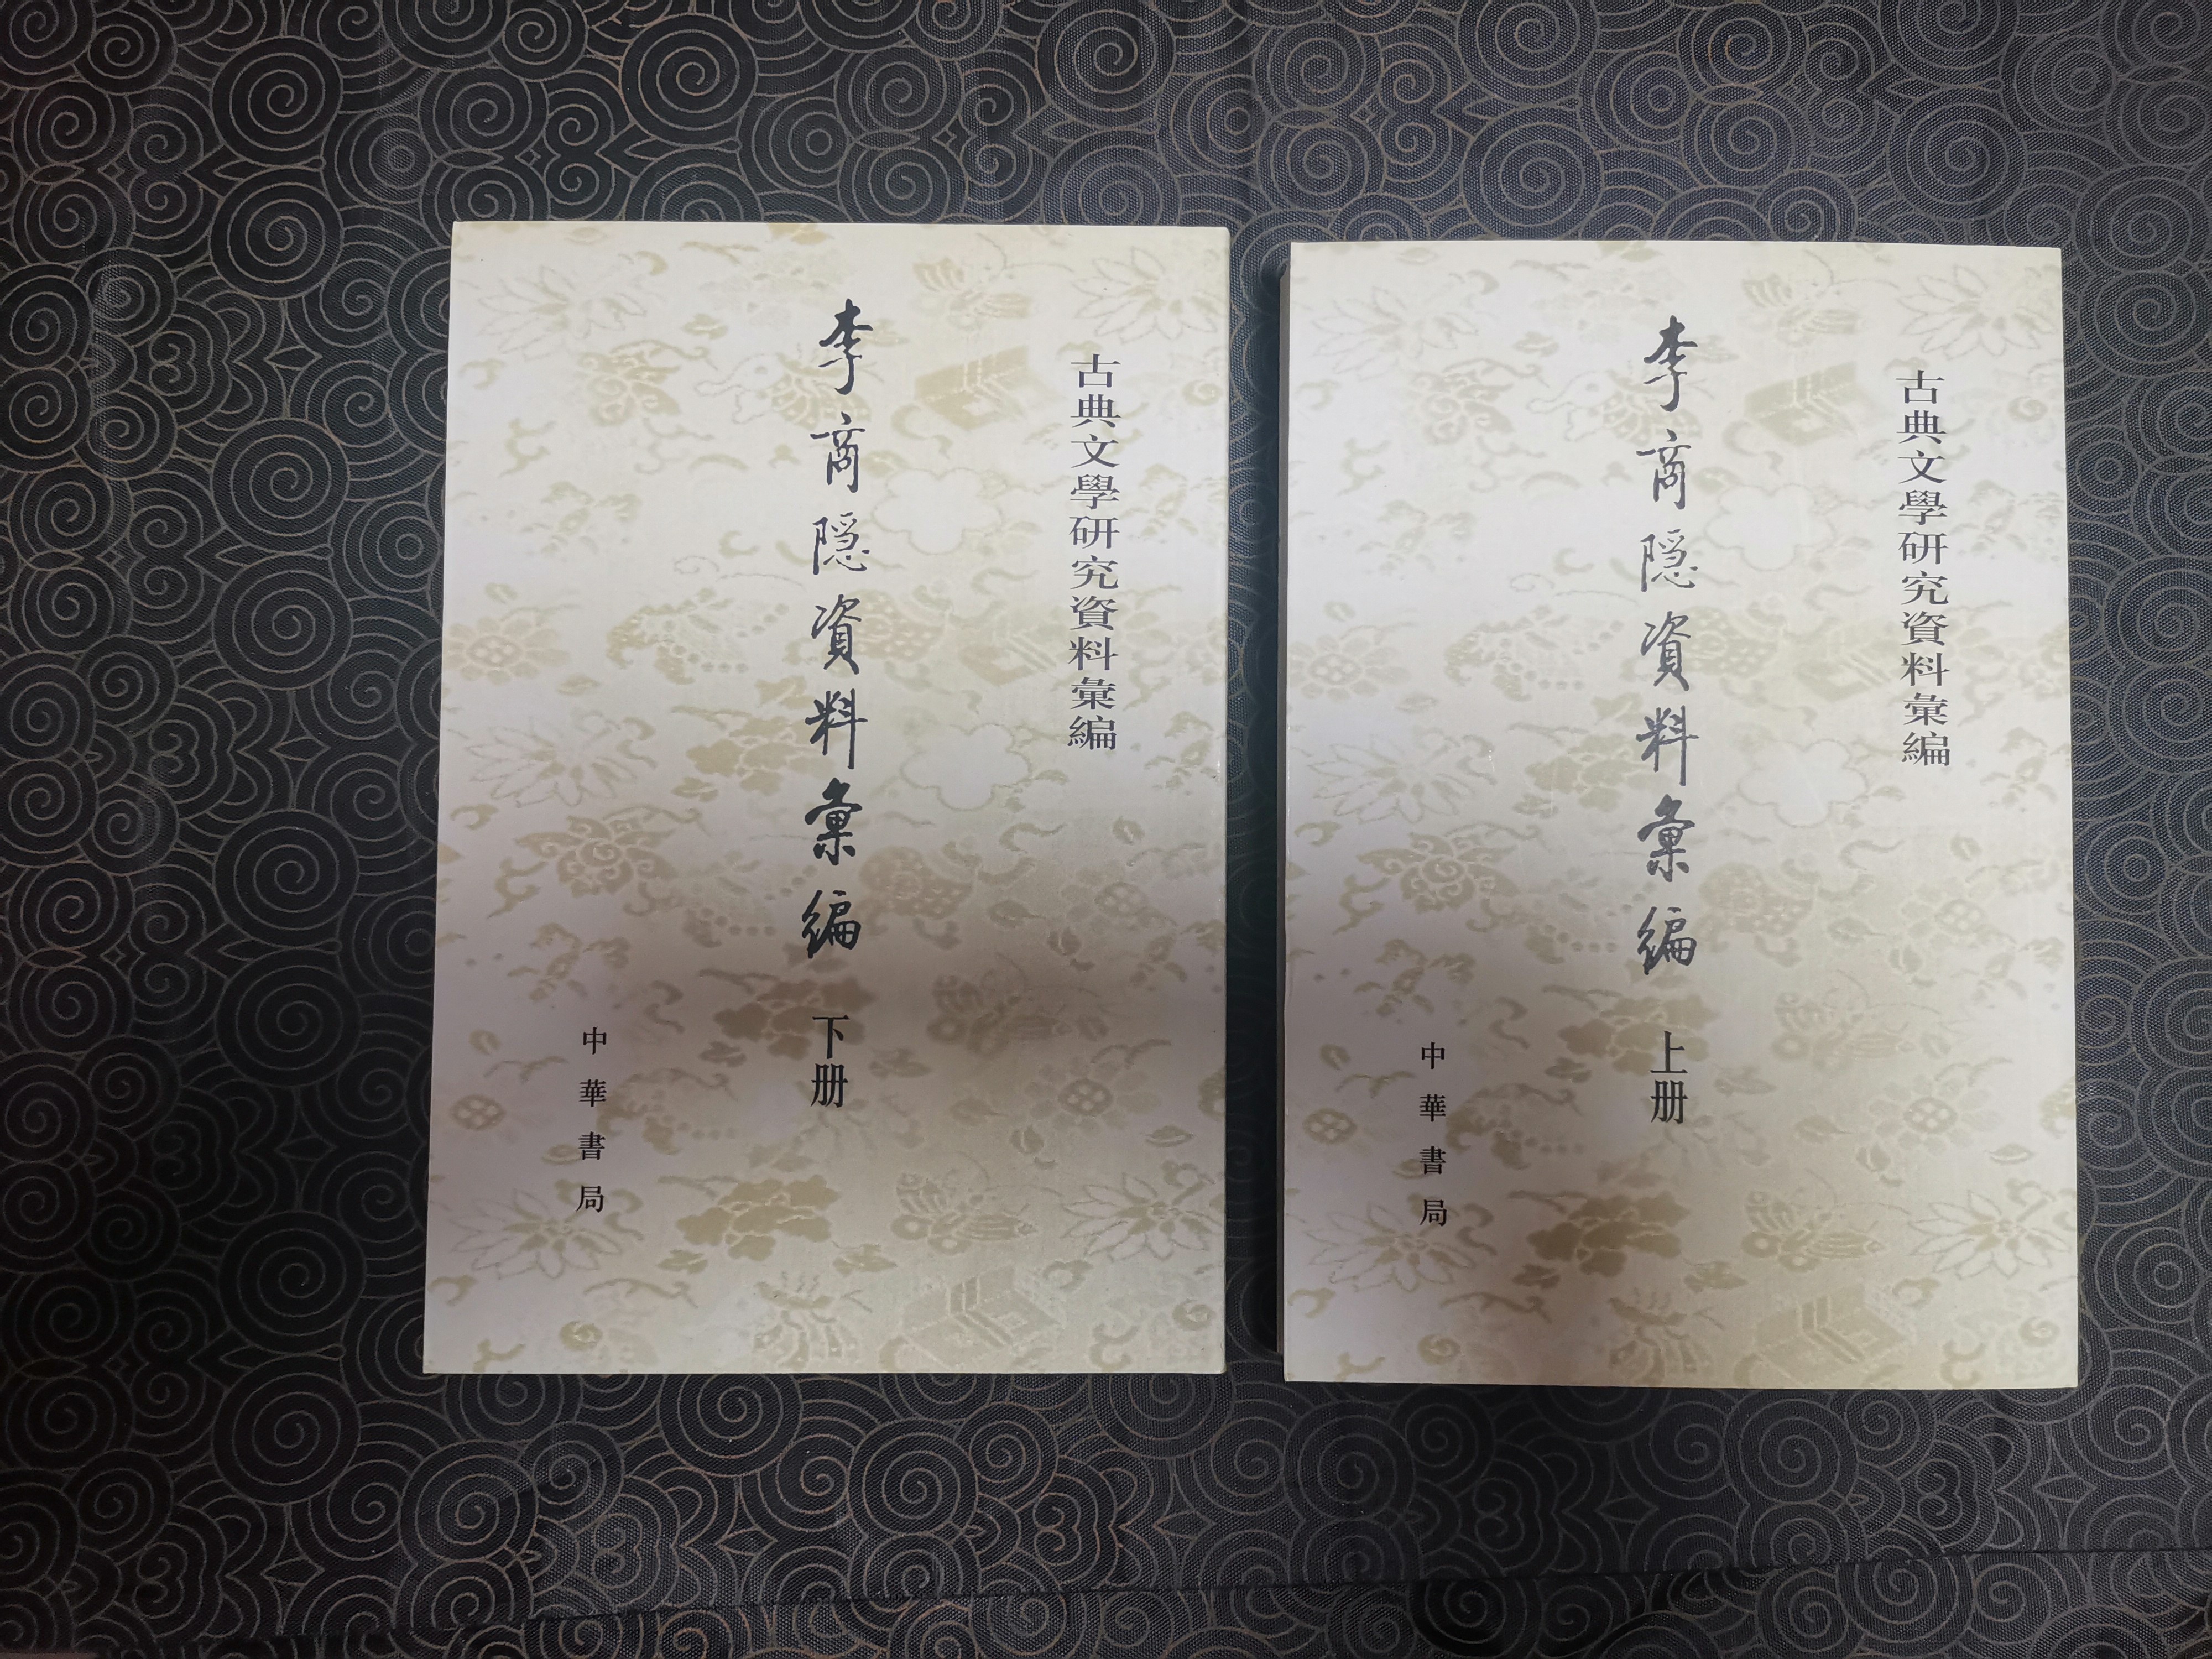 古典文學研究資料彙編
李商隱資料彙編 上册
中華書局
古典文學研究資料彙編
李商隱資料彙編 下册
中華書局